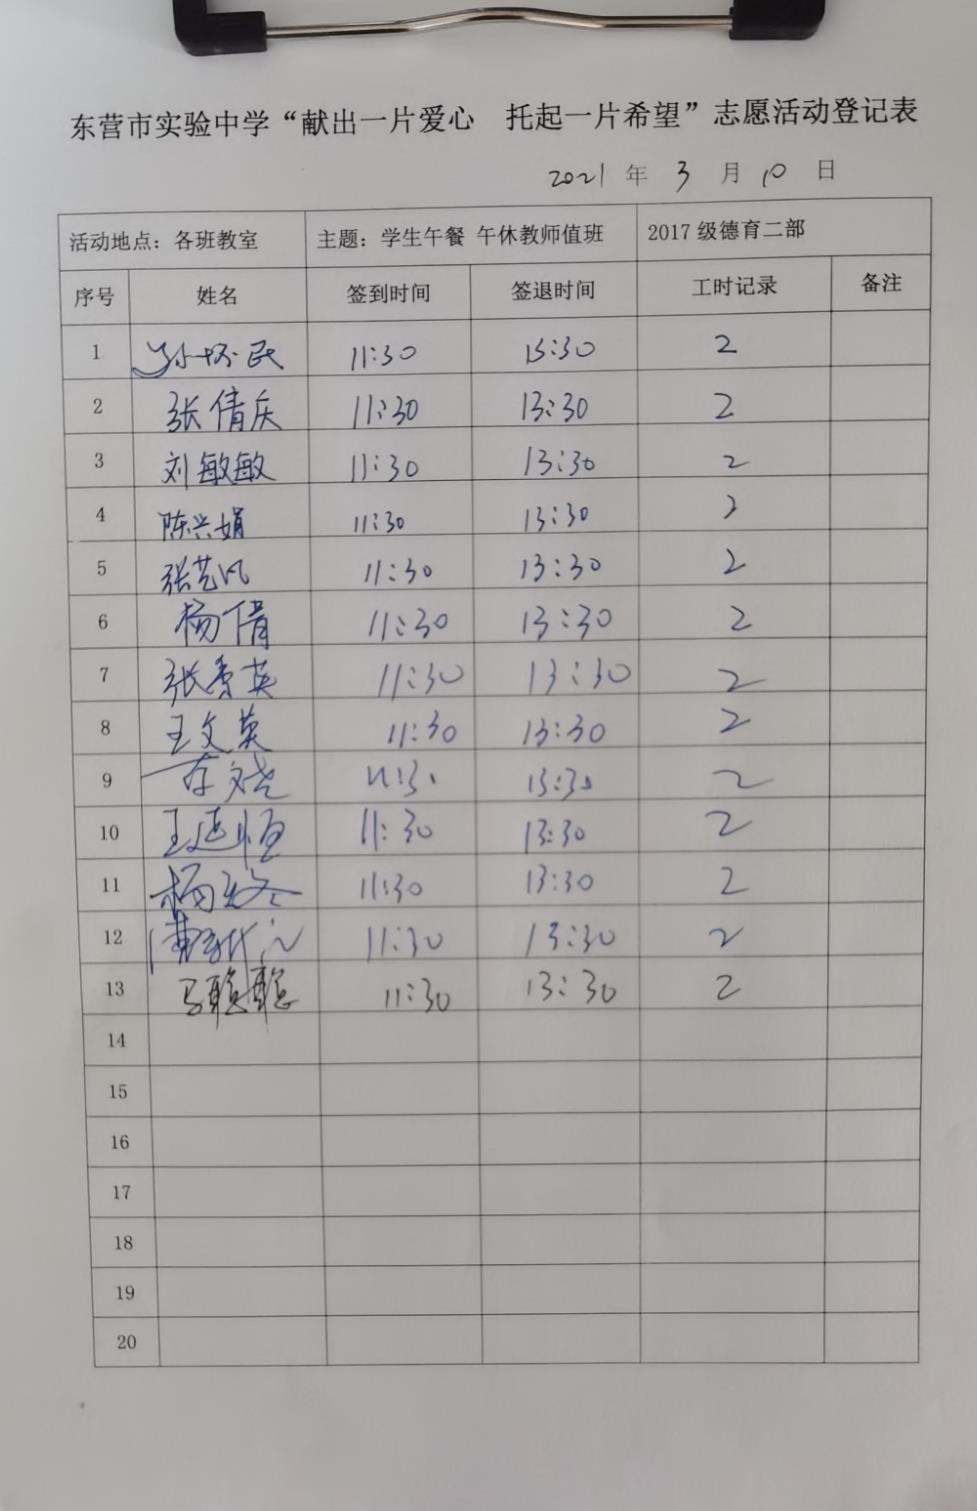 东营市实验中学“献出一片爱心 托起一片希望”志愿活动登记表
2021 年 3 月 10 日
活动地点：各班教室 主题：学生午餐 午休教师值班 2017级德育二部
序号 姓名 签到时间 签退时间 工时记录 备注
1 孙怀民 11:30 13:30 2
2 张倩庆 11:30 13:30 2
3 刘敏敏 11:30 13:30 2
4 陈兴娟 11:30 13:30 2
5 张艺凡 11:30 13:30 2
6 杨倩 11:30 13:30 2
7 张秀英 11:30 13:30 2
8 王文英 11:30 13:30 2
9 11:30 13:30 2
10 王延恒 11:30 13:30 2
11 11:30 13:30 2
12 11:30 13:30 2
13 马聪聪 11:30 13:30 2
14
15
16
17
18
19
20